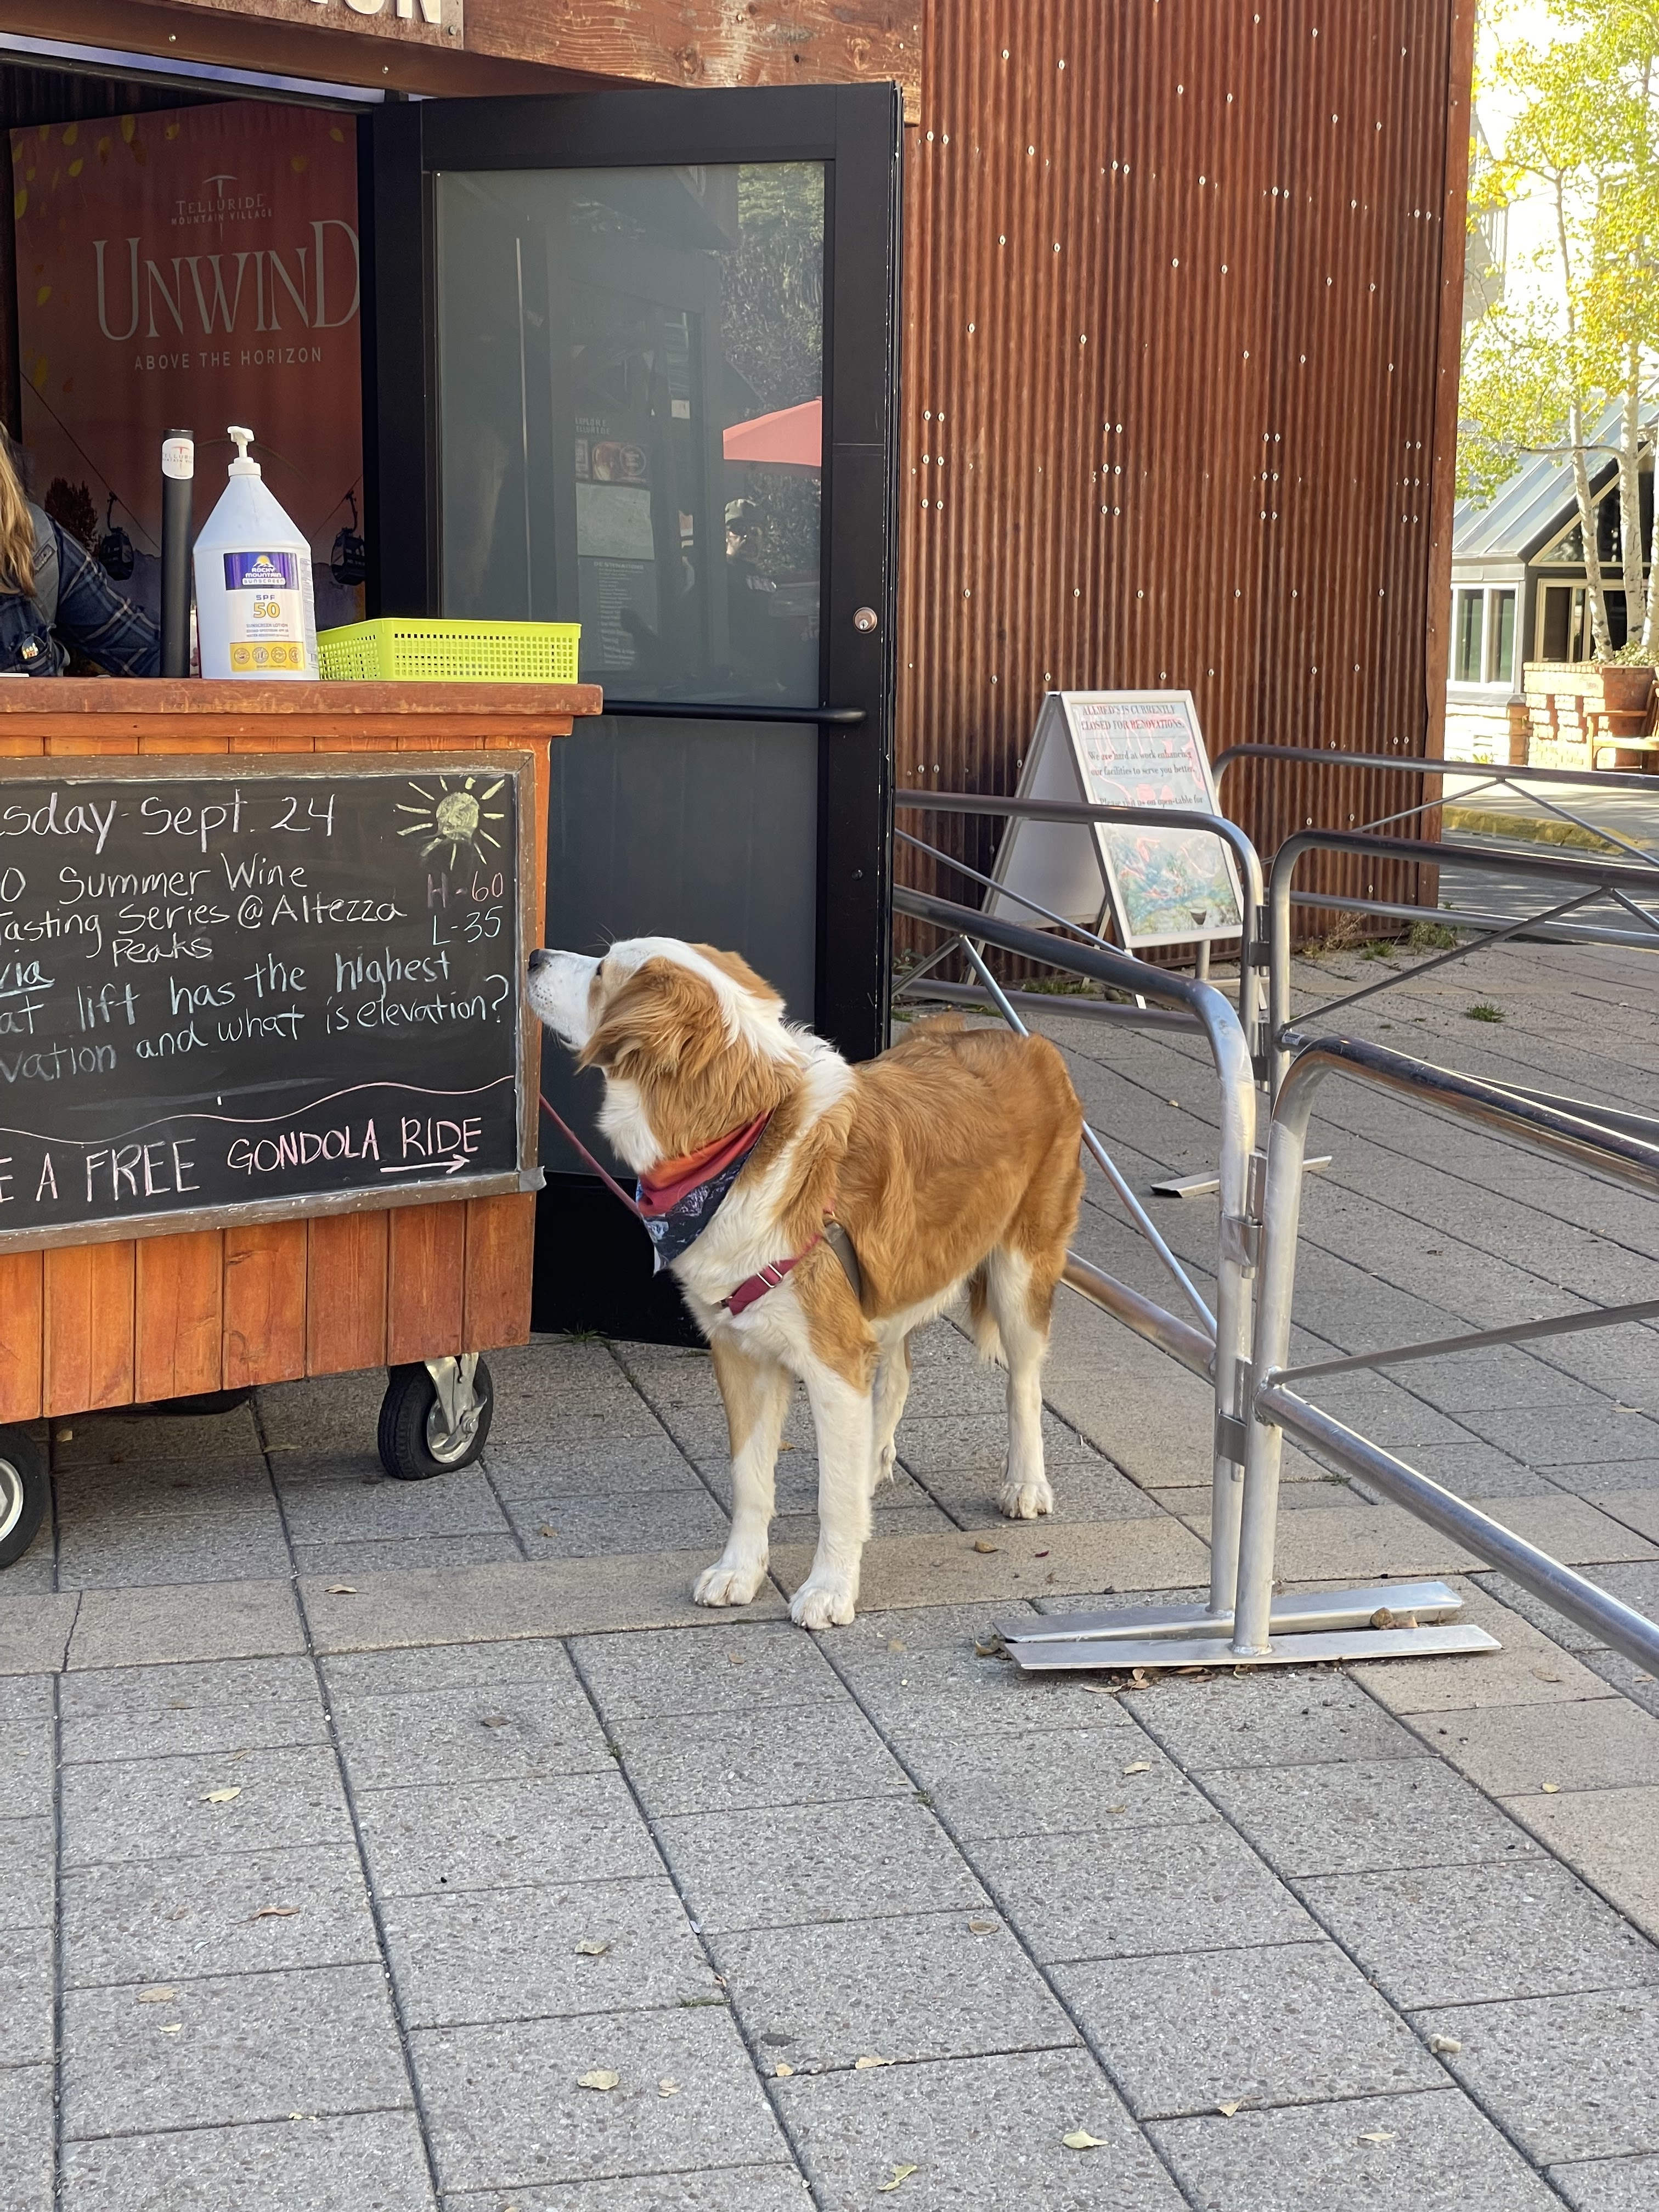 ON
TELLURIDE
MOUNTAIN VILLAGE
UNWIND
ABOVE THE HORIZON
ROCKY
MOUNTAIN
SUNSCREEN
SPF
50
SUNSCREEN LOTION
EXPLORE
TELLURIDE
sday-Sept. 24
0 Summer Wine
Tasting Series @ Altezza
Peaks
H-60
L-35
via
at lift has the highest
vation and what is elevation?
E A FREE GONDOLA RIDE
ALLRED'S IS CURRENTLY
CLOSED FOR RENOVATIONS.
We are hard at work enhancing
our facilities to serve you better.
Please visit us on open-table for